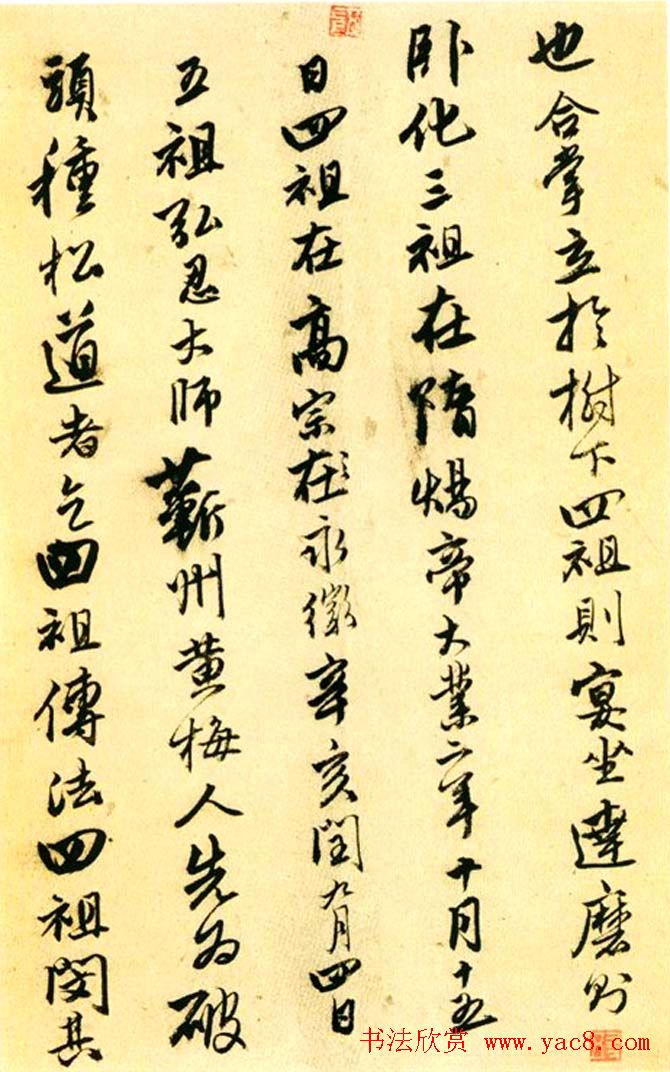 也合掌立於樹下四祖則宴坐達磨則
卧化三祖在隋煬帝大業二年十月十五
日四祖在高宗在永徽辛亥閏九月四日
五祖弘忍大师蘄州黄梅人先为破
頭種松道者乞四祖傳法四祖閔其
书法欣赏 www.yac8.com